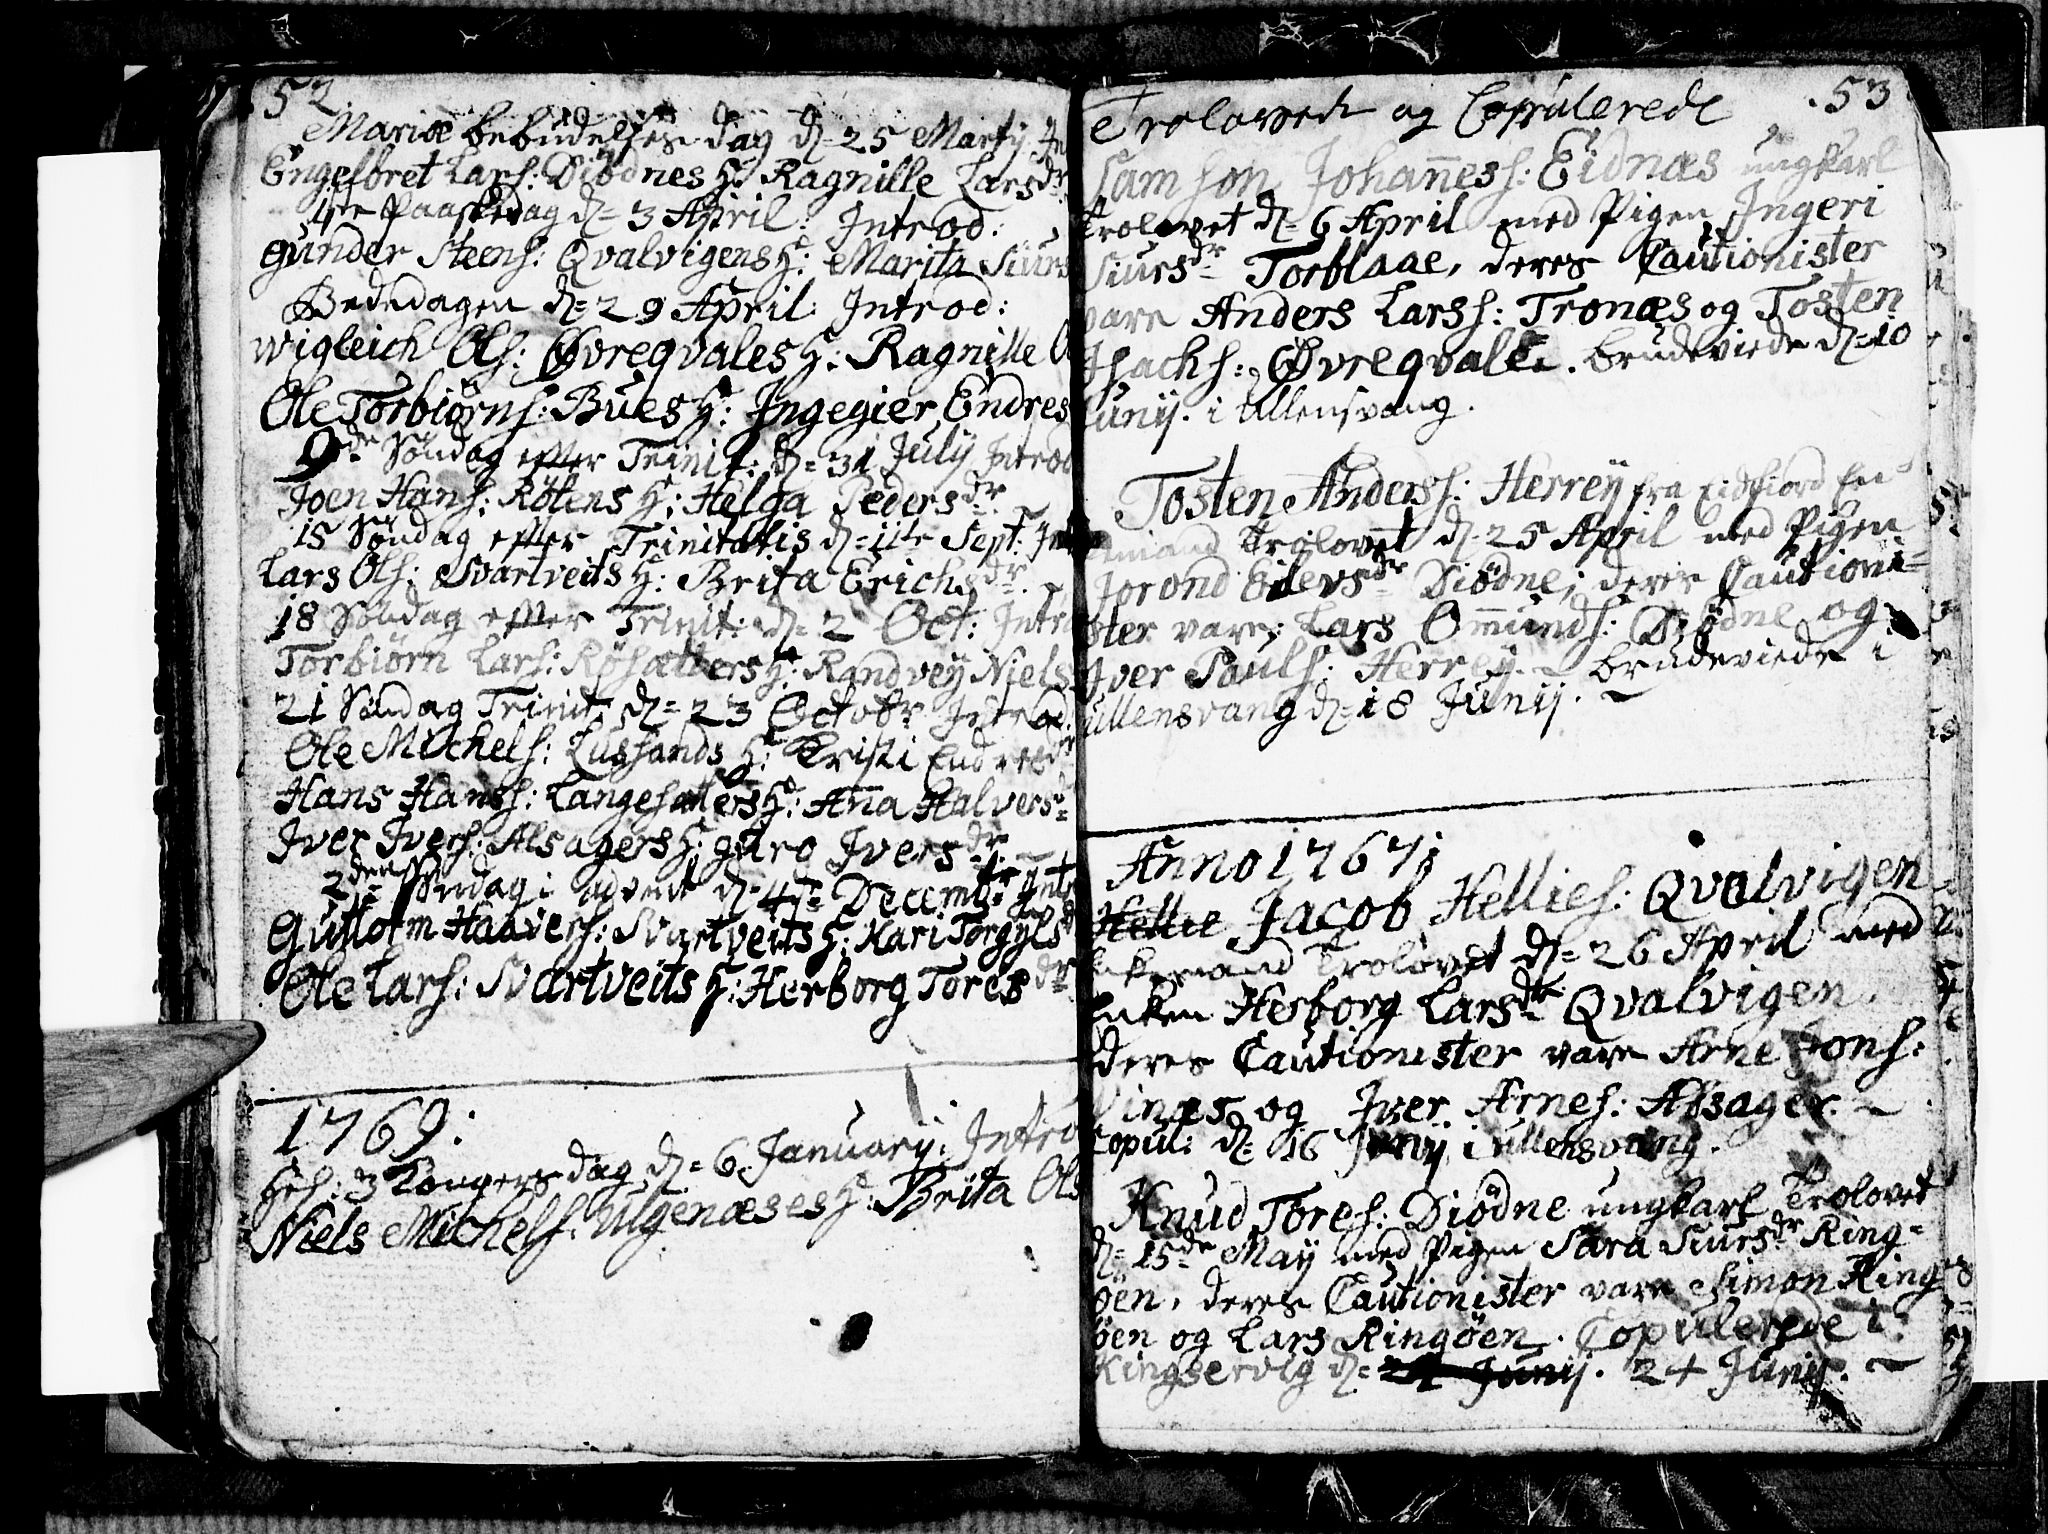 52
Mariæ bebudelses dag d= 25 Martij
Engelbret Lars: Diödnes H: Ragnille Larsdr
4te Paaskedag d= 3 April: Introd:
Gunder Steens: Qvalvigens H: Marita Siurs
Bededagen d= 29 April: Introd:
Wigleich Ols: Øvreqvales H: Ragnille
Ole Torbiörns: Bues H: Ingegier Endres
9de Söndag efter Trinit: d= 31 July Introd
Joen Hans: Rötens H: Helga Pedersdr
15 Söndag efter Trinitatis d= 11te Sept:
Lars Ols: Svartveits H: Brita Erichsdr.
18 Söndag efter Trinit: d= 2 Oct: Intro
Torbiørn Lars: Røsætters H: Randvey Niels
21 Söndag Trinit d= 23 Octobr Introd
Ole Michels: Lussands H: Kristi Endresdr
Hans Hanss: Langesætters H: Ana Halvers
Iver Ivers: Alsagers H: Guro Iversdr
2den Söndag i advent d= 4de Decembr
Guttorm Haavers: Svartveits H: Kari Torgyls
Ole Lars: Svartveits H: Herborg Toresdr
1769:
Hel: 3 Kongers dag d= 6 January: Intro
Niels Michels: Ulgenæses H: Brita Ols
Trolovede og Copulerede 53
Samson Johaness: Eidnæs ungkarl
Trolovet d= 6 April med Pigen Ingeri
Siursdr Torblaae, deres Cautionister
vare Anders Larss: Tronæs og Tosten
Isachs: Øvreqvale. brudeviede d= 10
Junij. i Ullensvang.
Tosten Anderss: Herrey fra Eidfiord En
kemand Trolovet d= 25 April med Pigen
Jorond Eilevsdr Diödne; deres Cautioni=
ster vare: Lars Omunds: Diödne og
Iver Pouls: Herrey. brudeviede i
Ullensvang d= 18 Junij.
Anno 1767
Hellie Jacob Hellies: Qvalvigen
Enkemand Trolovet d= 26 April med
Enken Herborg Larsdtr Qvalvigen.
deres Cautionister vare Arne Jons:
Vinæs og Iver Arnes: Alsager.
Copul: d= 16 Junij i Ullensvang.
Knud Tores: Diödne ungkarl Trolovet
d= 15de May med Pigen Sara Siursdr Ring=
öen, deres Cautionister vare Simon Ring
öen og Lars Ringöen. Copulerede i
Kingservig d= 24 Junij. 24 Junij.